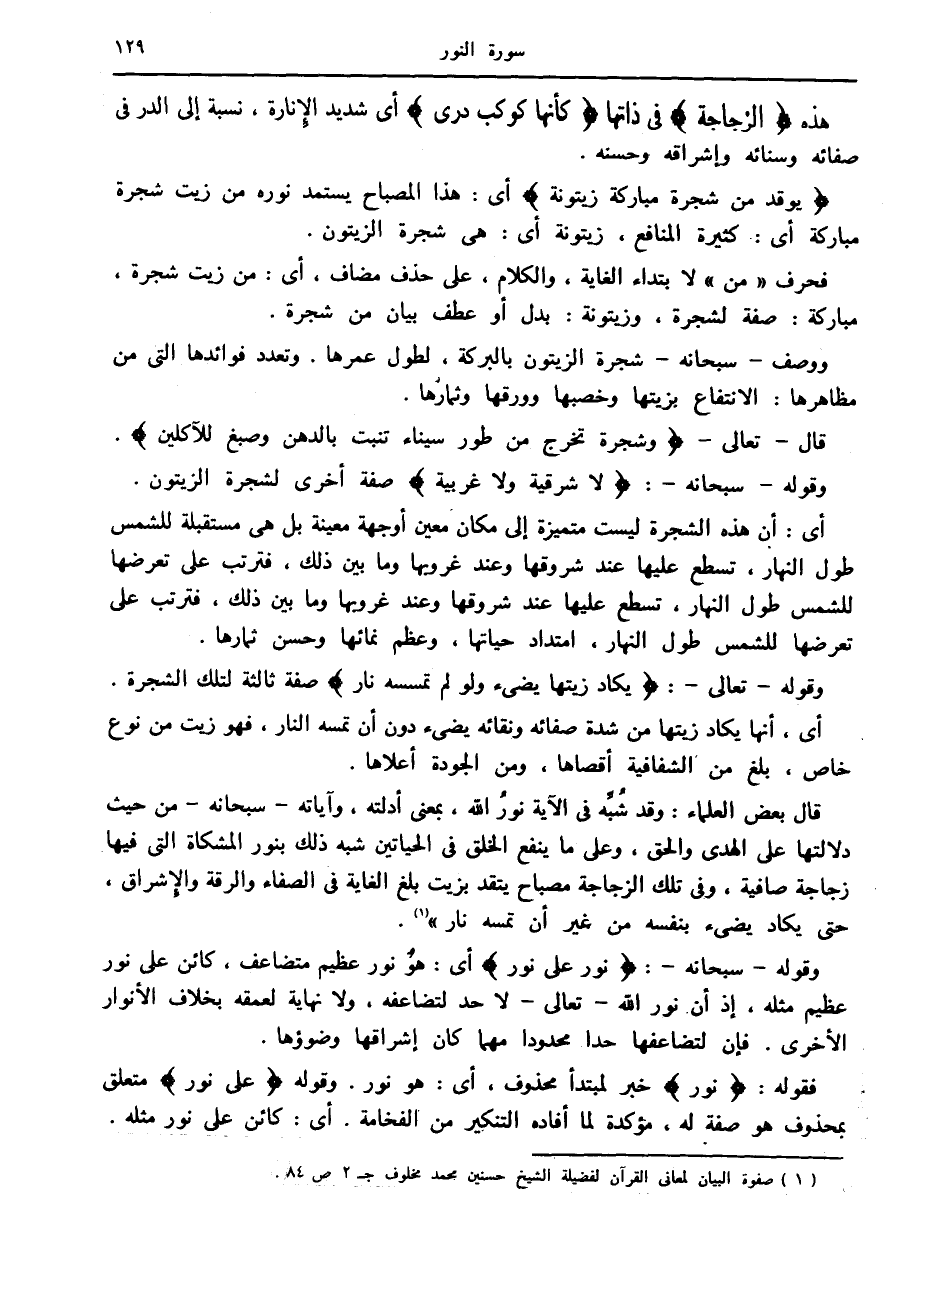 سورة النور ١٢٩
هذه ﴿ الزجاجة ﴾ فى ذاتها ﴿ كأنها كوكب درى ﴾ أى شديد الإنارة ، نسبة إلى الدر فى
صفائه وسنائه وإشراقه وحسنه .
﴿ يوقد من شجرة مباركة زيتونة ﴾ أى : هذا المصباح يستمد نوره من زيت شجرة
مباركة أى : كثيرة المنافع ، زيتونة أى : هى شجرة الزيتون .
فحرف « من » لا بتداء الغاية ، والكلام ، على حذف مضاف ، أى : من زيت شجرة ،
مباركة : صفة لشجرة ، وزيتونة : بدل أو عطف بيان من شجرة .
ووصف - سبحانه - شجرة الزيتون بالبركة ، لطول عمرها . وتعدد فوائدها التى من
مظاهرها : الانتفاع بزيتها وخصبها وورقها وثمارها .
قال - تعالى - ﴿ وشجرة تخرج من طور سيناء تنبت بالدهن وصبغ للآكلين ﴾ .
وقوله - سبحانه - : ﴿ لا شرقية ولا غربية ﴾ صفة أخرى لشجرة الزيتون .
أى : أن هذه الشجرة ليست متميزة إلى مكان معين أوجهة معينة بل هى مستقبلة للشمس
طول النهار ، تسطع عليها عند شروقها وعند غروبها وما بين ذلك ، فترتب على تعرضها
للشمس طول النهار ، تسطع عليها عند شروقها وعند غروبها وما بين ذلك ، فترتب على
تعرضها للشمس طول النهار ، امتداد حياتها ، وعظم نمائها وحسن ثمارها .
وقوله - تعالى - : ﴿ يكاد زيتها يضىء ولو لم تمسسه نار ﴾ صفة ثالثة لتلك الشجرة .
أى ، أنها يكاد زيتها من شدة صفائه ونقائه يضىء دون أن تمسه النار ، فهو زيت من نوع
خاص ، بلغ من الشفافية أقصاها ، ومن الجودة أعلاها .
قال بعض العلماء : وقد شُبِّه فى الآية نورُ الله ، بمعنى أدلته ، وآياته - سبحانه - من حيث
دلالتها على الهدى والحق ، وعلى ما ينفع الخلق فى الحياتين شبه ذلك بنور المشكاة التى فيها
زجاجة صافية ، وفى تلك الزجاجة مصباح يتقد بزيت بلغ الغاية فى الصفاء والرقة والإشراق ،
حتى يكاد يضىء بنفسه من غير أن تمسه نار »(١) .
وقوله - سبحانه - : ﴿ نور على نور ﴾ أى : هو نور عظيم متضاعف ، كائن على نور
عظيم مثله ، إذ أن نور الله - تعالى - لا حد لتضاعفه ، ولا نهاية لعمقه بخلاف الأنوار
الأخرى . فإن لتضاعفها حدا محدودا مهما كان إشراقها وضوؤها .
فقوله : ﴿ نور ﴾ خبر لمبتدأ محذوف ، أى : هو نور . وقوله ﴿ على نور ﴾ متعلق
بمحذوف هو صفة له ، مؤكدة لما أفاده التنكير من الفخامة . أى : كائن على نور مثله .
( ١ ) صفوة البيان لمعانى القرآن لفضيلة الشيخ حسنين محمد مخلوف جـ ٢ ص ٨٤ .